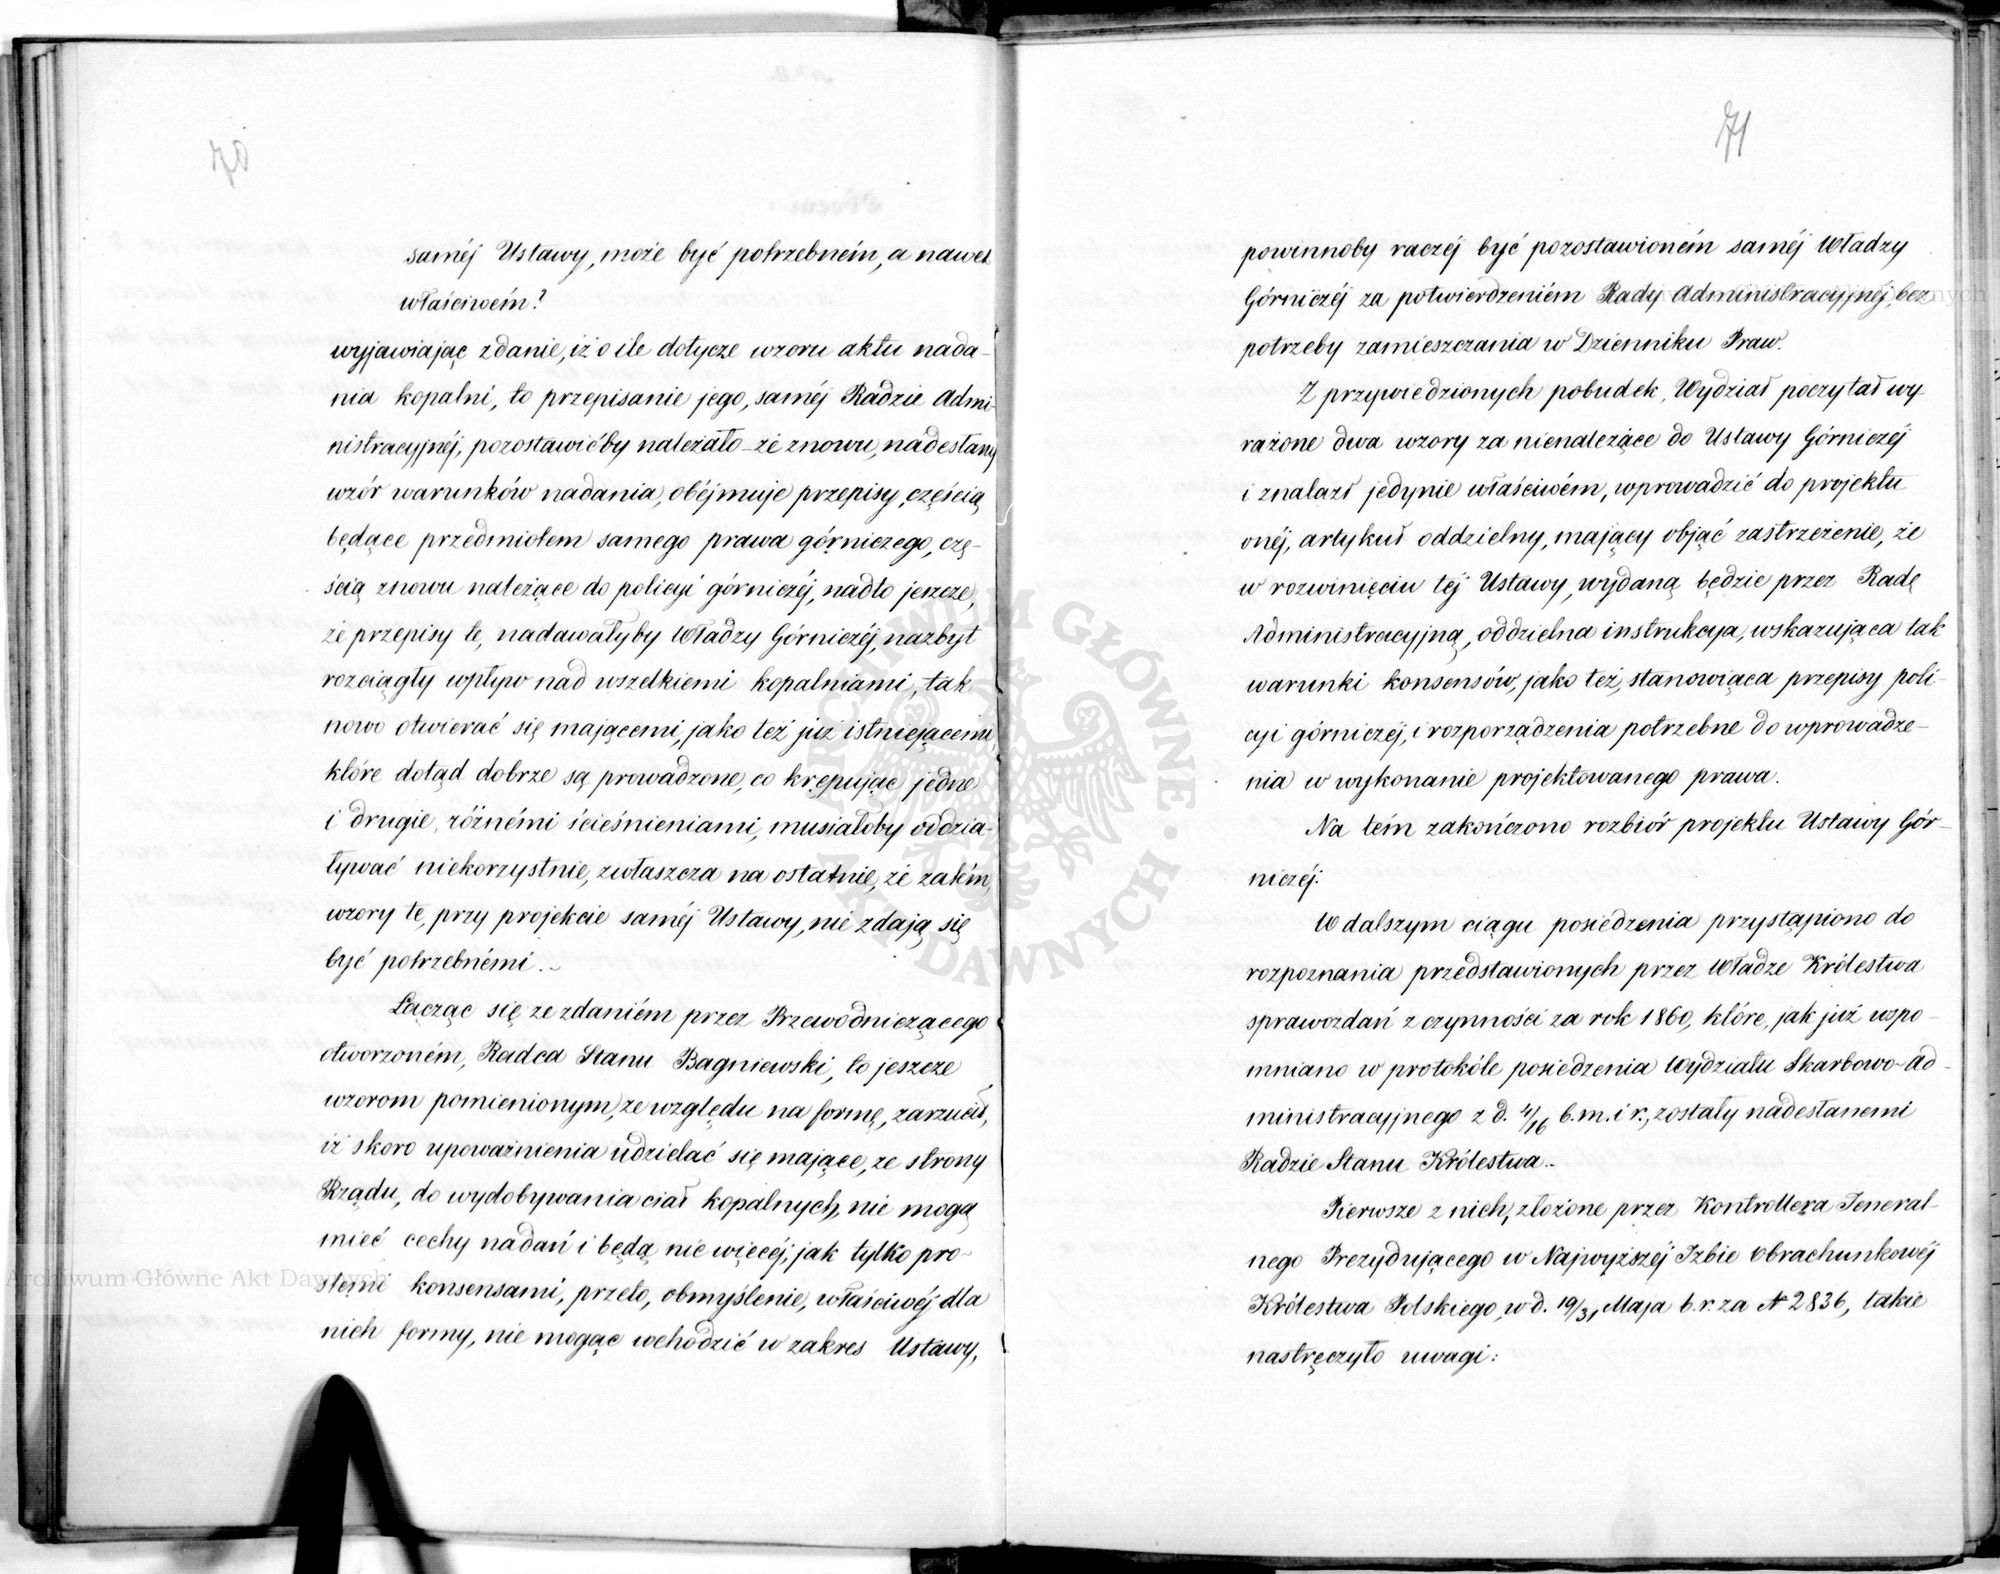 samėj Ustawy, może być potrzebnėm, a nawet
właściwėm?
wyjawiając zdanie, iż o ile dotycze wzoru aktu nada-
nia kopalni, to przepisanie jego, samėj Radzie Admi-
nistracyjnėj, pozostawićby należało – że znowu, nadesłany
wzór warunków nadania, obėjmuje przepisy, częścią
będące przedmiotem samego prawa górniczego, czę-
ścią znowu należące do policyi górniczėj, nadto jeszcze,
że przepisy te, nadawałyby Władzy Górniczėj, nazbyt
rozciągły wpływ nad wszelkiemi kopalniami, tak
nowo otwierać się mającemi, jako też już istniejącemi,
które dotąd dobrze są prowadzone, co krępując jedne
i drugie, różnėmi ścieśnieniami, musiałoby oddzia-
ływać niekorzystnie, zwłaszcza na ostatnie, że zatėm,
wzory te, przy projekcie samėj Ustawy, nie zdają się
być potrzebnėmi. –
Łącząc się ze zdaniėm przez Przewodniczącego
otworzonėm, Radca Stanu Bagniewski, to jeszcze
wzorom pomienionym, ze względu na formę, zarzucił,
iż skoro upoważnienia udzielać się mające, ze strony
Rządu, do wydobywania ciał kopalnych, nie mogą
mieć cechy nadań i będą nie więcėj, jak tylko pro-
stemi konsensami, przeto, obmyślenie, właściwėj dla
nich formy, nie mogąc wchodzić w zakres Ustawy,
71
powinnoby raczėj być pozostawionėm samėj Władzy
Górniczėj za potwierdzeniėm Rady Administracyjnėj, bez
potrzeby zamieszczania w Dzienniku Praw.
Z przywiedzionych pobudek, Wydział poczytał wy-
rażone dwa wzory za nienależące do Ustawy Górniczėj
i znalazł jedynie właściwėm, wprowadzić do projektu
onėj, artykuł oddzielny, mający objąć zastrzeżenie, że
w rozwinięciu tėj Ustawy, wydaną będzie przez Radę
Administracyjną, oddzielna instrukcya, wskazująca tak
warunki konsensów, jako też, stanowiąca przepisy poli-
cyi górniczėj, i rozporządzenia potrzebne do wprowadze-
nia w wykonanie projektowanego prawa.
Na tėm zakończono rozbiór projektu Ustawy Gór-
niczėj.
W dalszym ciągu posiedzenia przystąpiono do
rozpoznania przedstawionych przez Władze Królestwa
sprawozdań z czynności za rok 1860, które, jak już wspo-
mniano w protokóle posiedzenia Wydziału Skarbowo-Ad-
ministracyjnego z d. 4/16 b.m. i r., zostały nadesłanemi
Radzie Stanu Królestwa. –
Pierwsze z nich, złożone przez Kontrollera Jeneral-
nego Prezydującego w Najwyższėj Izbie Obrachunkowėj
Królestwa Polskiego, w d. 19/31 Maja b.r. za № 2836, takie
nastręczyło uwagi:
Archiwum Główne Akt Dawnych
ARCHIWUM GŁÓWNE AKT DAWNYCH